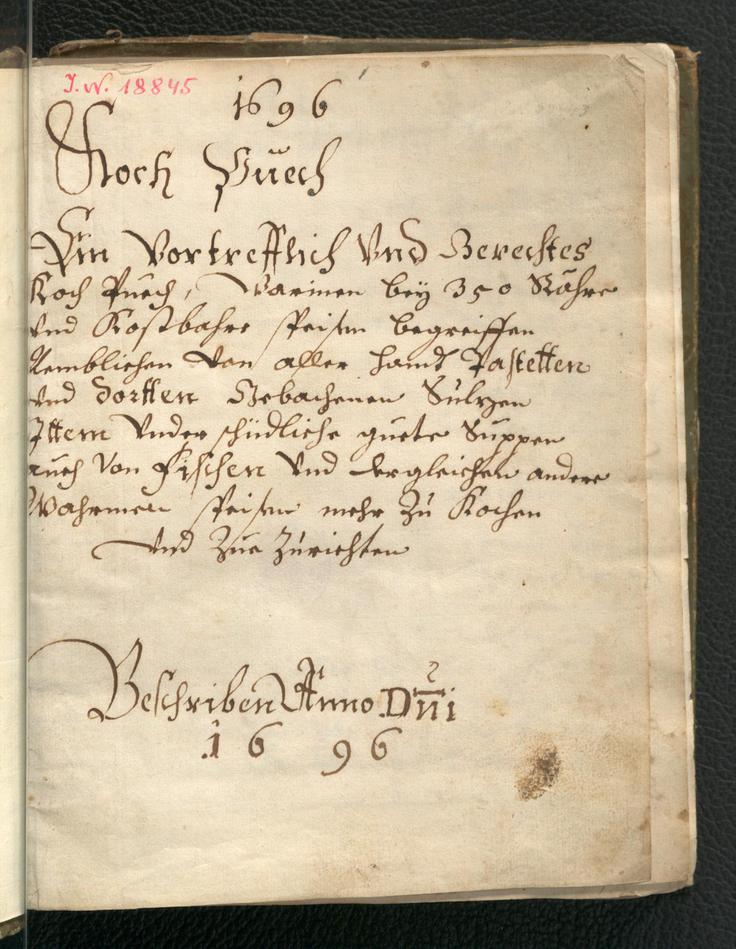 J. N. 18845
1696
Koch Puech
Ein Vortrefflich Vnd Gerechtes
Koch Puech, Warinen bey 350 Rähre
Vnd Kostbahre speisen begreiffen
Nemblichen Von aller handt Pastetten
Vnd Dortten Gebachenen Sulzen
Ittem Vnderschidliche guete Suppen
auch Von Fischen Vnd dergleichen andere
Wahrmen speisen mehr Zu Kochen
Vnd Zue Zurichten
Beschriben Anno Dñi
1696